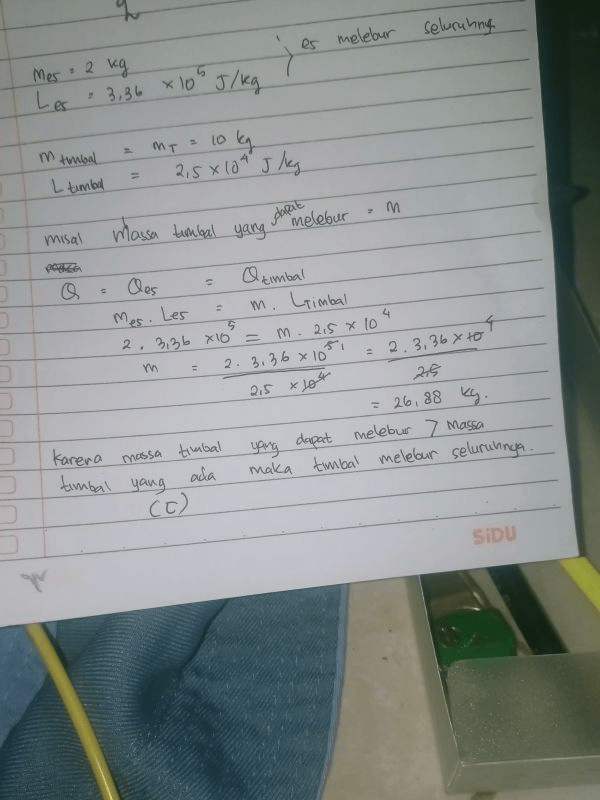 Mes = 2 kg
Les = 3,36 × 10⁵ J/kg } es melebur seluruhnya
m timbal = mT = 10 kg
L timbal = 2,5 × 10⁴ J/kg
misal Massa timbal yang dapat melebur = m
Q = Qes = Qtimbal
Mes . Les = m . LTimbal
2 . 3,36 × 10⁵ = m . 2,5 × 10⁴
m = 2 . 3,36 × 10⁵ ¹ / 2,5 × 10⁴ = 2 . 3,36 × 10 ⁴ / 2,5
= 26,88 kg.
Karena massa timbal yang dapat melebur > massa
timbal yang ada maka timbal melebur seluruhnya.
(C)
SiDU